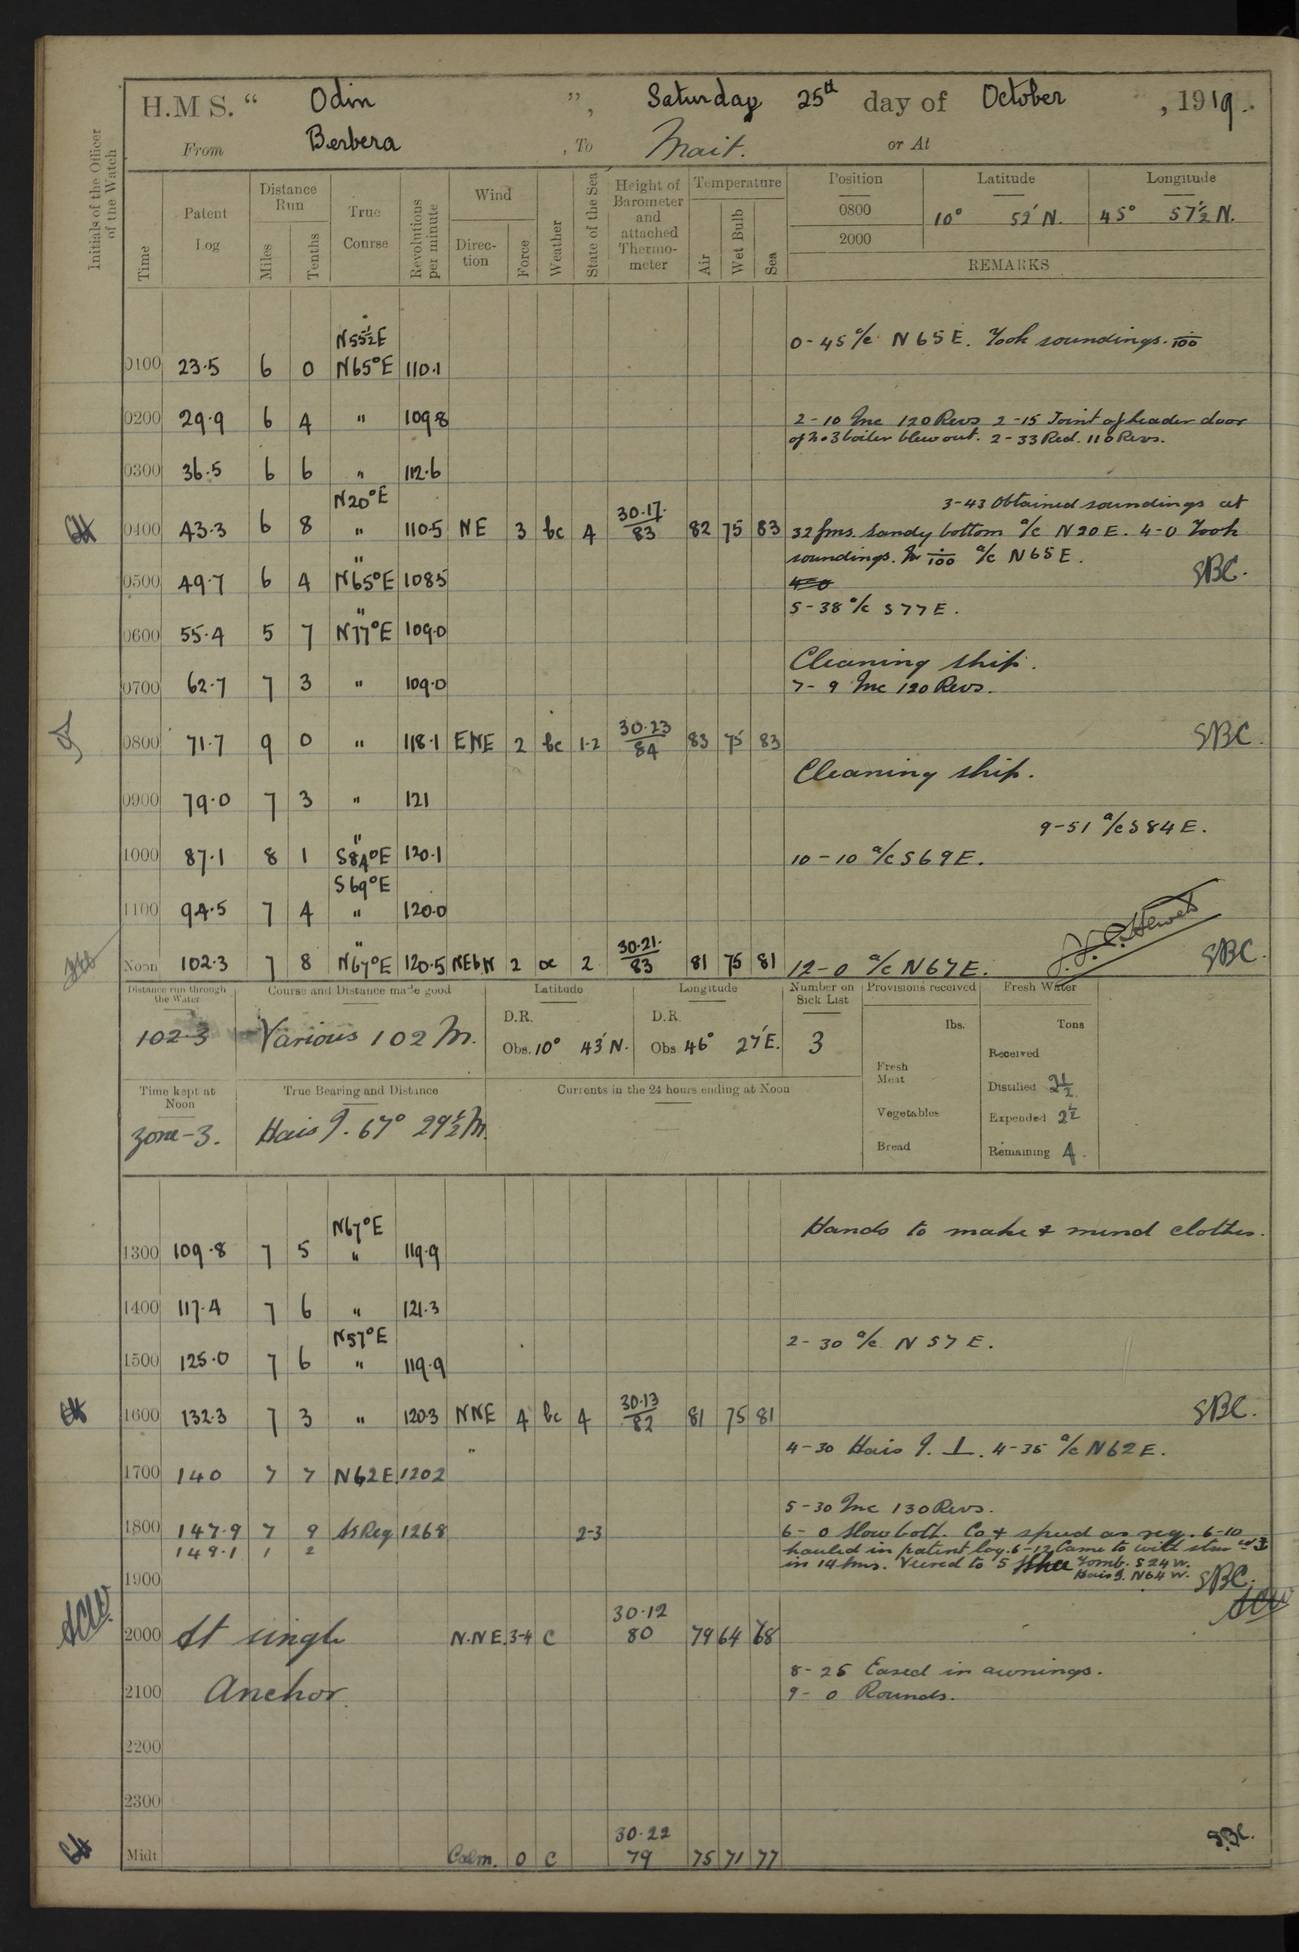 H.M.S. “ Odin ”, Saturday 25th day of October , 1919.
From Berbera , To Mait. or At
Initials of the Officer of the Watch
Time
Patent Log
Distance Run
Miles
Tenths
True Course
Revolutions per minute
Wind
Direction
Force
Weather
State of the Sea
Height of Barometer and attached Thermometer
Temperature
Air
Wet Bulb
Sea
Position Latitude Longitude
0800 10° 52' N. 45° 57½' N.
2000
REMARKS
N55½E
0-45 a/c N65E. Took soundings.
0100 23.5 6 0 N65°E 110.1
0200 29.9 6 4 " 109.8
2-10 Inc 120 Revs 2-15 Joint of header door
of No3 boiler blew out. 2-33 Red. 110 Revs.
0300 36.5 6 6 " 112.6
N20°E
3-43 Obtained soundings at
0400 43.3 6 8 " 110.5 NE 3 bc 4 30.17/83 82 75 83 32 fms. Sandy bottom a/c N20E. 4-0 Took
soundings. a/c N65E.
0500 49.7 6 4 "N65°E 108.5 SBC.
4-0
5-38 a/c S77E.
0600 55.4 5 7 "N77°E 109.0
Cleaning ship.
0700 62.7 7 3 " 109.0 7-9 Inc 120 Revs.
0800 71.7 9 0 " 118.1 ENE 2 bc 1-2 30.23/84 83 75 83 SBC.
Cleaning ship.
0900 79.0 7 3 " 121
9-51 a/c S84E.
1000 87.1 8 1 "S84°E 120.1 10-10 a/c S69E.
S69°E
1100 94.5 7 4 " 120.0
Noon 102.3 7 8 "N67°E 120.5 NEbN 2 bc 2 30.21/83 81 75 81 12-0 a/c N67E. Hewett SBC.
Distance run through the Water
Course and Distance made good
Latitude
Longitude
Number on Sick List
Provisions received
Fresh Water
102.3
Various 102 M.
D.R.
Obs. 10° 43' N.
D.R.
Obs 46° 27' E.
3
lbs.
Fresh Meat
Vegetables
Bread
Tons
Received
Distilled 2½
Expended 2½
Remaining 4.
Time kept at Noon
True Bearing and Distance
Currents in the 24 hours ending at Noon
Zone-3.
Hais I. 67° 29½ M.
N67°E
Hands to make & mend clothes.
1300 109.8 7 5 " 119.9
1400 117.4 7 6 " 121.3
N57°E
2-30 a/c N57E.
1500 125.0 7 6 " 119.9
1600 132.3 7 3 " 120.3 NNE 4 bc 4 30.13/82 81 75 81 SBC.
"
4-30 Hais I. ⊥. 4-35 a/c N62E.
1700 140 7 7 N62E. 120.2
5-30 Inc 130 Revs.
1800 147.9 7 9 As Req 126.8 2-3 6-0 Slow both. Co & speed as req. 6-10
149.1 1 2 hauled in patent log. 6-12 Came to with
in 14 fms. Veered to 5 Tomb. S24W.
Hais I. N64W.
1900 SBC.
ACW
2000 At single N.N.E. 3-4 c 30.12 80 79 64 68
8-25 Eased in awnings.
2100 Anchor. 9-0 Rounds.
2200
2300
Midt Calm. 0 c 30.22 79 75 71 77 SBC.